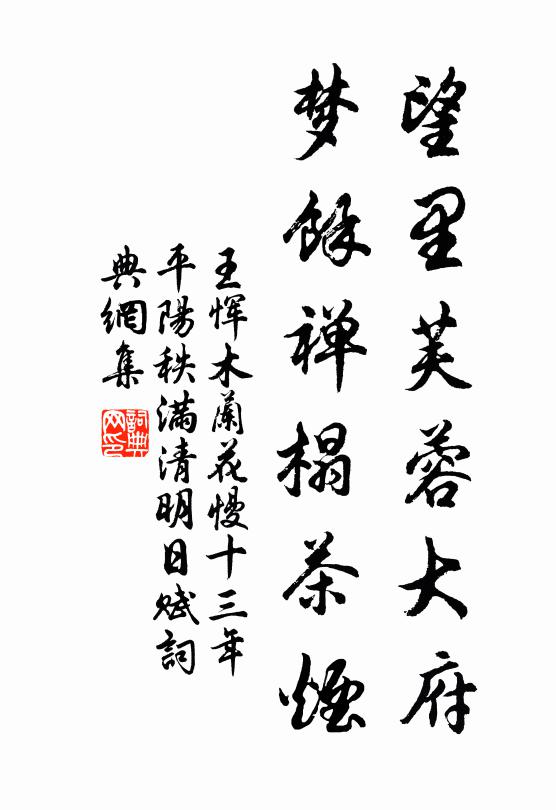 望里芙蓉大府
梦馀禅榻茶烟
王恽木蘭花慢十三年
平陽秩滿清明日赋詞
典網集
詞典网印